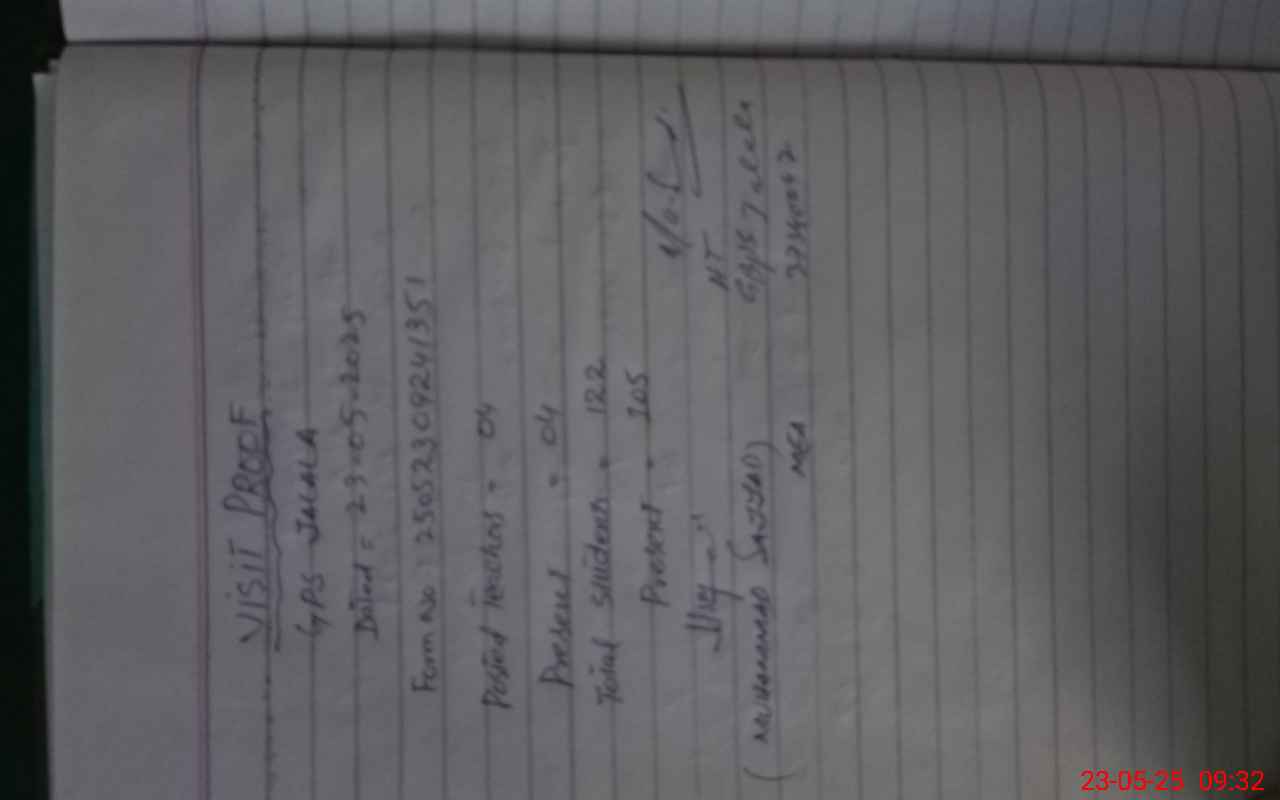 VISIT PROOF
GPS JALALA
Dated = 23-05-2025
Form No : 25052309241351
Posted Teachers = 04
Present = 04
Total Students = 122
Present = 105
HT
GPS Jalala
(MUHAMMAD SAJJAD)
MEA
23-05-25 09:32